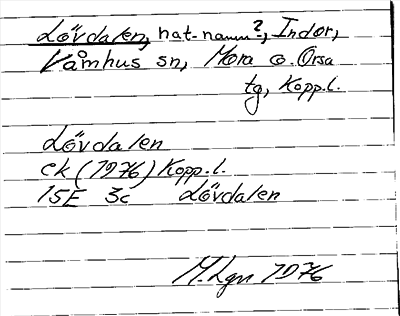 Lövdalen, nat-namn?, Indor,
Våmhus sn, Mora o. Orsa
tg, Kopp.l.
Lövdalen
ek (1976) Kopp.l.
15E 3c Lövdalen
M.Lgn 1976